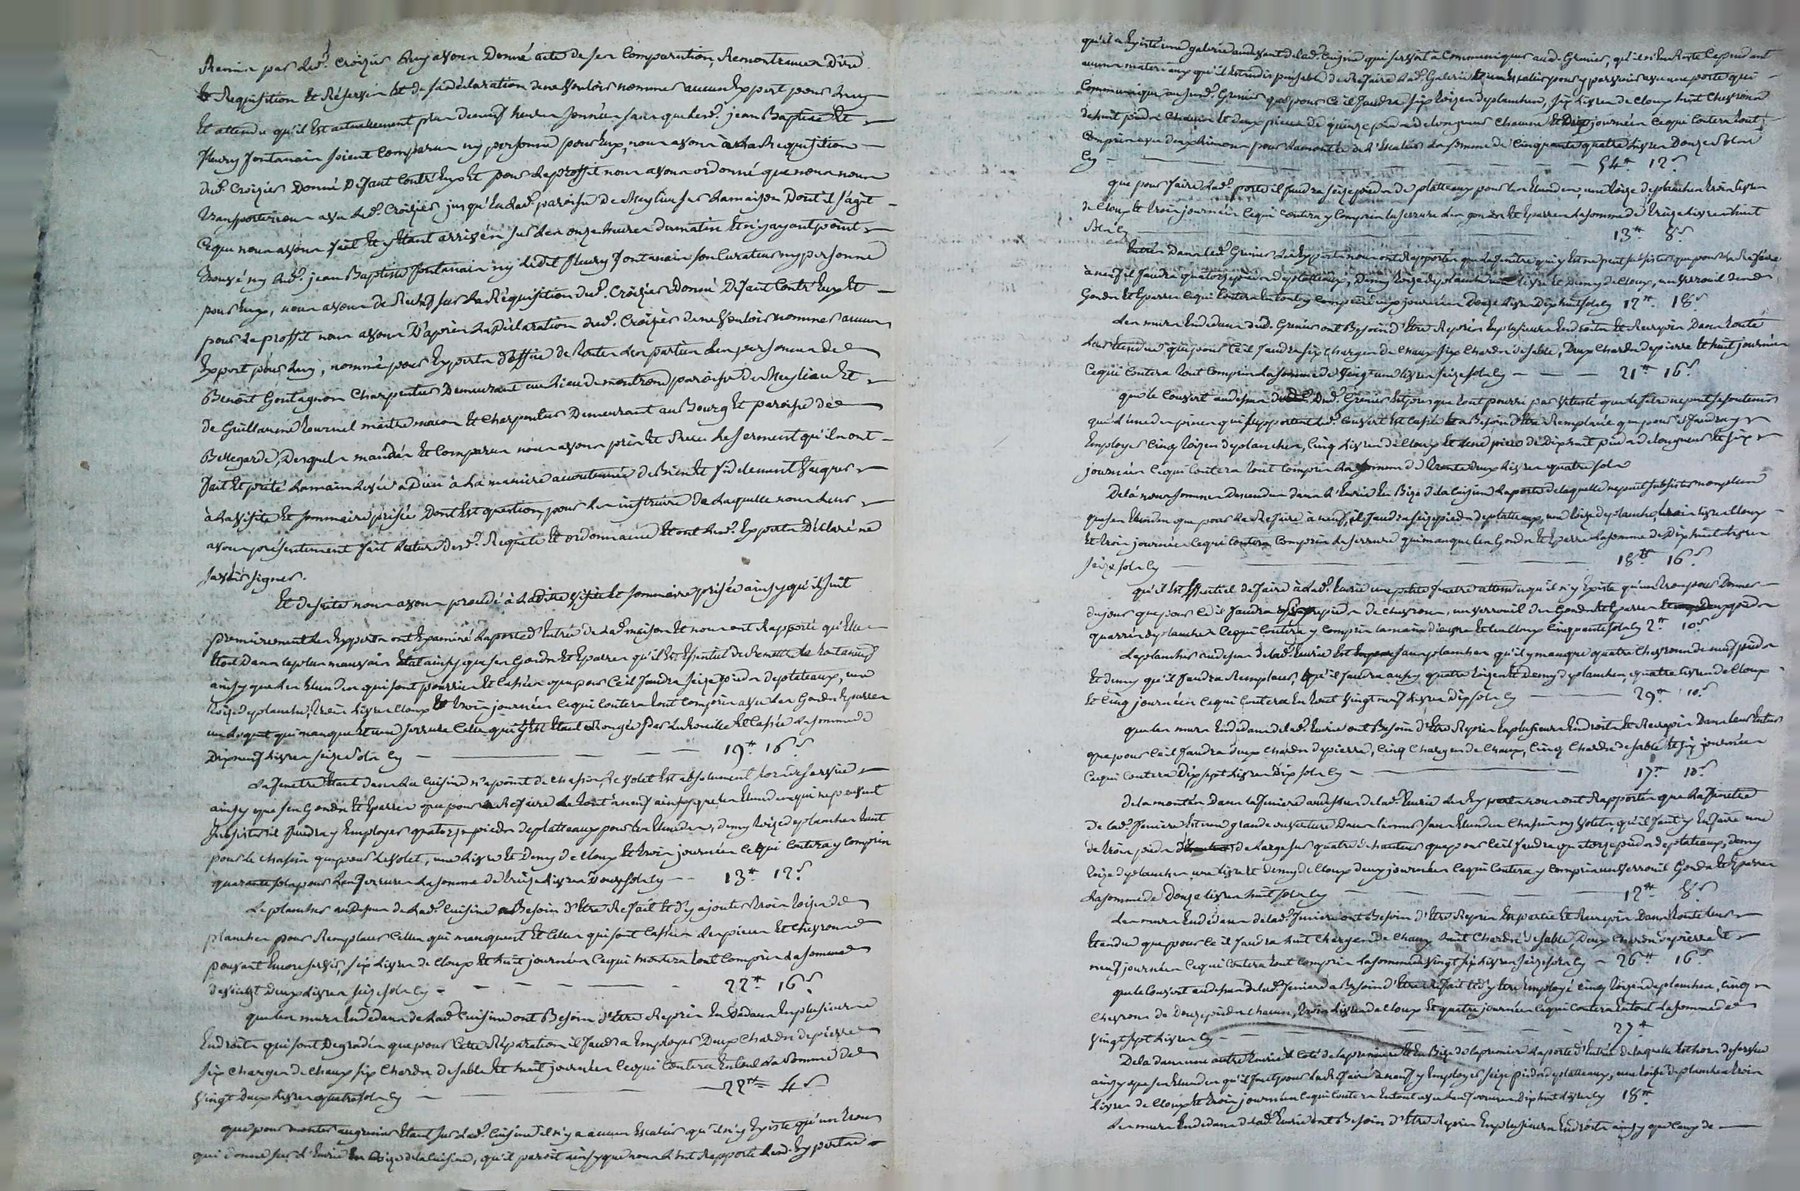 Remis par led.t Croizier Luy avons Donné acte de ses Comparution Remontrances Dire
Requisition Et Réserves Et de sa déclaration de ne vouloir nommer aucun Expert pour luy
Et attendu qu'il Est actuellement plus de neuf heures sonnées sans que led.t jean Baptiste Et
fleury fontanais soient Comparus ny personne pour Eux, nous avons à la Requisition
dud.t Croizier Donné Défaut Contr'Eux Et pour le proffit nous avons ordonné que nous nous
transporterions avec led.t Croizier jusqu'En lad.e paroisse de Meylieu sur la maison Dont il s'agit
Ce que nous avons fait Et y Etant arrivés sur les onze heures du matin Et n'y ayant point
trouvé ny led.t jean Baptiste fontanais ny ledit fleury fontanais son Curateur ny personne
pour Eux, nous avons de Rechef sur la Réquisition dud.t Croizier Donné Défaut Contr'Eux Et
pour le proffit nous avons D'après la Déclaration dud.t Croizier de ne vouloir nommer aucun
Expert pour luy, nommé pour Experts d'office de toutes les parties les personnes de
Benoît Gontagnon Charpentier Demeurant au lieu de montrond paroisse de Meylieu Et
de Guillaume tournel maître maçon Et Charpentier Demeurant au Bourg Et paroisse de
Bellegarde, Desquels mandés Et Comparus nous avons pris Et Reçu le serment qu'ils ont
fait Et prêté la main levée à Dieu à la maniere accoutumée de Bien Et fidelement vaquer
à la visite Et sommaire prisée Dont Est question, pour les instruire de laquelle nous leur
avons présentement fait lecture desd. Requete Et ordonnance Et ont lesd. Experts Déclaré ne
savoir signer.
Et de suite nous avons procédé à ladite visite Et sommaire prisée ainsy qu'il suit
premierement les Experts ont Examiné la porte d'Entrée de lad.e maison Et nous ont Rapporté qu'Elle
Etoit Dans le plus mauvais Etat ainsy que ses Gonds Et Eparres qu'il Est Essentiel de Remettre le tout à neuf
ainsy que les Elandes qui sont pourries Et Cassées que pour Ce il faudra seize pieds de plateaux, une
toize de planches, trois livres Cloux Et trois journées Ce qui Coutera tout Compris avec les Gonds Eparres
un loquet qui manque Et une serrure Celle qui y Est Etant Rongée par la Rouille Et Cassée la somme de
Dix neuf livres seize sols Cy — 19.tt 16.s
La fenetre Etant dans la Cuisine n'a point de chassis, le volet Est absolument hors de service
ainsy que ses Gonds Et Eparres que pour Refaire le tout à neuf ainsy que les Elandes qui ne peuvent
subsister il faudra y Employer quatorze pieds de platteaux pour les Elandes, demy toize de planches tant
pour le chassis que pour le volet, une livre Et Demy de Cloux Et trois journées Ce qui Coutera y Compris
quarante sols pour les ferrures la somme de treize livres Douze sols Cy — 13.tt 12.s
Le plancher au dessus de lad.e Cuisine a Besoin d'Etre Refait Et d'y ajouter trois toizes de
planches pour Remplacer Celles qui manquent Et Celles qui sont Cassées les pieces Et chevrons
pouvant Encore servir, six livres de Cloux Et huit journées Ce qui montera tout Compris la somme
de vingt Deux livres seize sols Cy — 22.tt 16.s
que les murs En dedans de lad.e Cuisine ont Besoin d'Etre Repris En Dedans En plusieurs
Endroits qui sont Dégradés que pour Cette Réparation il faudra Employer Deux Chards de pierre
six charges de Chaux six Chards de sable Et huit journées Ce qui Coutera En tout la somme de
vingt Deux livres quatre sols Cy — 22.tt 4.s
que pour monter au grenier Etant sur lad.e Cuisine il n'y a aucun Escalier qu'il n'y Existe qu'un trou
qui donne sur l'Ecurie En Bize de la Cuisine, qu'il paroit ainsy que nous l'ont Rapporté lesd. Experts
qu'il a Existé une galerie au devant de lad.e Cuisine qui servoit à Communiquer aud. Grenier, qu'il n'En Reste Cependant
aucuns materiaux qu'il Est indispensable de Refaire lad.e Galerie Et un Escalier pour y parvenir avec une porte qui
Communique aud.t Grenier que pour Ce il faudra six toizes de planches, six livres de Cloux huit Chevrons
de huit pieds Chacun Et deux pieces de quinze pieds de longueur Chacune Et Dix journées Ce qui Coutera tout
Compris avec deux limons pour la montée de l'Escalier la somme de Cinquante quatre livres Douze sols
Cy — 54.tt 12.s
que pour faire lad.e porte il faudra seize pieds de platteaux pour les Elandes, une toize de planches trois livres
de Cloux Et trois journées Ce qui Coutera y Compris la serrure les gonds Et Eparres la somme de treize livres huit
sols Cy — 13.tt 8.s
Entrés Dans led.t Grenier les Experts nous ont Rapporté que la fenetre qui y Est ne peut subsister que pour la Refaire
à neuf il faudra quatorze pieds de platteaux, Demy toize de planches une livre Et Demy de Cloux, un verrouil deux
Gonds Et Eparres Ce qui Coutera En tout y Compris six journées Douze livres Dix huit sols Cy 12.tt 18.s
Les murs En dedans dud. Grenier ont Besoin d'Etre Repris En plusieurs Endroits Et Recrepis Dans toute
leur Etendue que pour Ce il faudra six Charges de Chaux six Chards de sable, Deux Chards de pierre Et huit journées
Ce qui Coutera tout Compris la somme de vingt une livres seize sols Cy — 21.tt 16.s
que le Couvert au dessus dud. Grenier Est presque tout pourri par vétusté que le faîte ne peut se soutenir
qu'une des pieces qui supportent led. Couvert Est Cassée Et a Besoin d'Etre Remplacée que pour Ce il faudra y
Employer Cinq toizes de planches, Cinq livres de Cloux Et une piece de Dix huit pieds de longueur Et six
journées Ce qui Coutera tout Compris la somme de trente deux livres quatre sols
De là nous sommes Descendus dans l'Ecurie En Bize de la Cuisine la porte de laquelle ne peut subsister non plus
que ses Elandes que pour la Refaire à neuf, il faudra seize pieds de plateaux, une toize de planches, trois livres Cloux
Et trois journées Ce qui Coutera Compris la serrure qui manque les Gonds Et Eparres la somme de Dix huit livres
seize sols Cy — 18.tt 16.s
qu'il Est Essentiel de faire à lad.e Ecurie une petite fenetre attendu qu'il n'y Existe qu'un trou pour Donner
du jour que pour Ce il faudra pieds de chevrons, un verrouil des Gonds Et Eparres Et Deux pieds
quarrés de planches Ce qui Coutera y Compris la main d'œuvre Et les Cloux Cinquante sols Cy 2.tt 10.s
Le plancher au dessus de lad.e Ecurie Est sans planches qu'il y manque quatre Chevrons de neuf pieds
Et demy qu'il faudra Remplacer, Et qu'il faudra aussy quatre toizes Et Demy de planches, quatre livres de Cloux
Et Cinq journées Ce qui Coutera En tout vingt neuf livres dix sols Cy — 29.tt 10.s
que les murs En dedans de lad.e Ecurie ont Besoin d'Etre Repris En plusieurs Endroits Et Recrepis Dans leur Entier
que pour Ce il faudra deux Chards de pierre, Cinq Charges de Chaux, Cinq Chards de sable Et six journées
Ce qui Coutera Dix sept livres Dix sols Cy — 17.tt 10.s
De là montés Dans la feniere au dessus de lad.e Ecurie les Experts nous ont Rapporté que la fenetre
de lad.e feniere Est une grande ouverture Dans le mur sans Elandes Chassis ny volet, qu'il faut y En faire une
de trois pieds de large sur quatre de hauteur que pour Ce il faudra quatorze pieds de plateaux, demy
toize de planches une livre Et demy de Cloux deux journées Ce qui Coutera y Compris un verrouil Gonds Et Eparres
la somme de Douze livres huit sols Cy — 12.tt 8.s
Les murs En dedans de lad.e feniere ont Besoin d'Etre Repris En partie Et Recrepis Dans toute leur
Etendue que pour Ce il faudra huit Charges de Chaux huit Chards de sable, Deux Chards de pierre Et
neuf journées Ce qui Coutera tout Compris la somme de vingt six livres seize sols Cy — 26.tt 16.s
que le Couvert au dessus de lad.e feniere a Besoin d'Etre Refait Et d'y Etre Employé Cinq toizes de planches, Cinq
Chevrons de Douze pieds Chacun, trois livres de Cloux Et quatre journées Ce qui Coutera En tout la somme de
vingt sept livres Cy — 27.tt
De là dans une autre Ecurie à Coté de la premiere Et En Bize de la premiere la porte d'Entrée de laquelle Est hors de service
ainsy que ses Elandes qu'il faut pour la Refaire à neuf y Employer seize pieds de platteaux, une toize de planches trois
livres de Cloux Et trois journées Ce qui Coutera En tout avec les ferrures Dix huit livres Cy 18.tt
Les murs En dedans de lad.e Ecurie ont Besoin d'Etre Repris En plusieurs Endroits ainsy que Ceux de